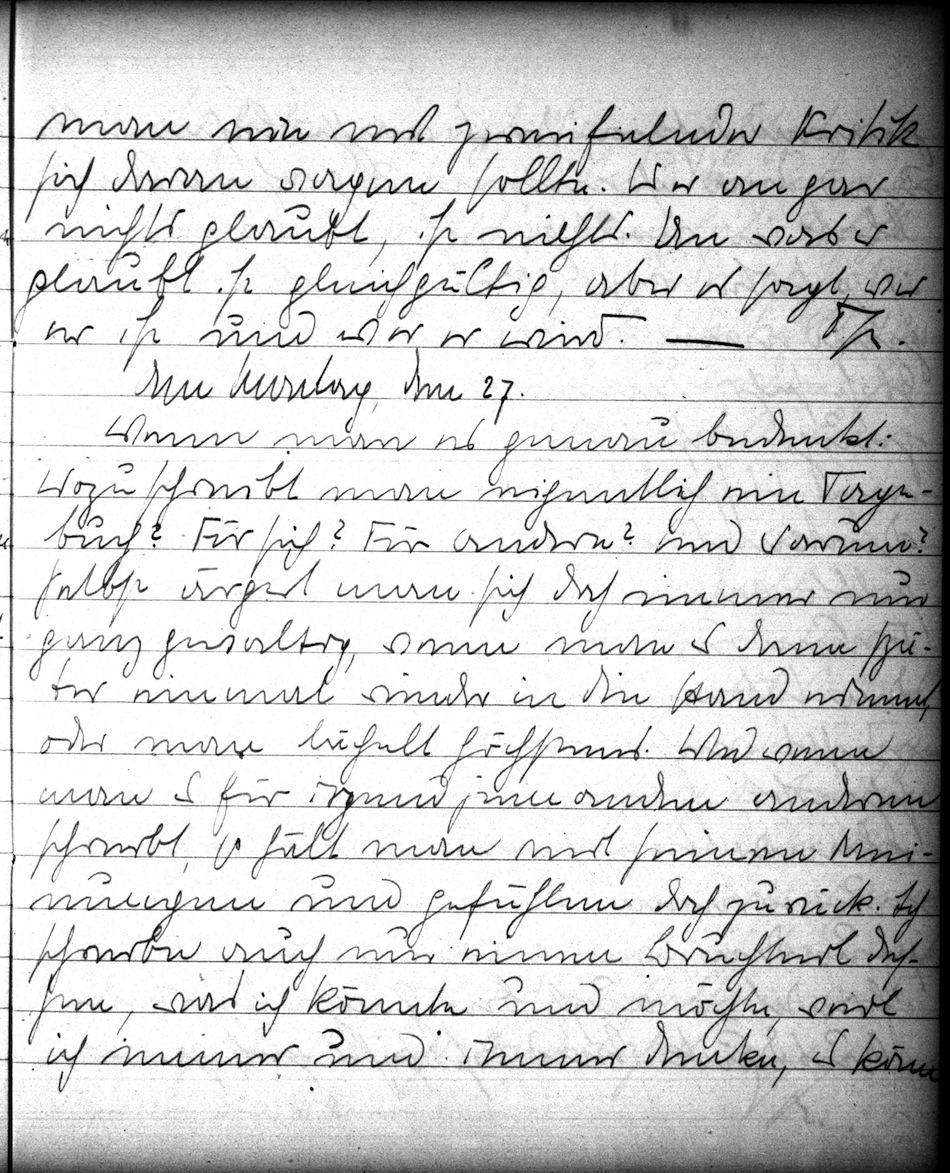 man nur mit zweifelnder Kritik
sich daran wagen sollte. Wer an gar
nichts glaubt, ist nichts. An was er
glaubt ist gleichgültig, aber er sagt, wer
er ist und wer er wird. —
Am Montag, den 27.
Wenn man es genau bedenkt:
Wozu schreibt man eigentlich ein Tage-
buch? Für sich? Für andere? und warum?
selbst ärgert man sich doch immer nur
ganz gewaltig, wenn man es dann spä-
ter einmal wieder in die Hand nimmt,
oder man lächelt höchstens. Und wenn
man es für irgend jemanden anderen
schreibt, so hält man mit seinen Mei-
nungen und Gefühlen doch zurück. Ich
schreibe auch nur einen Bruchteil des-
sen, was ich könnte und möchte, weil
ich immer und immer denke, es könn